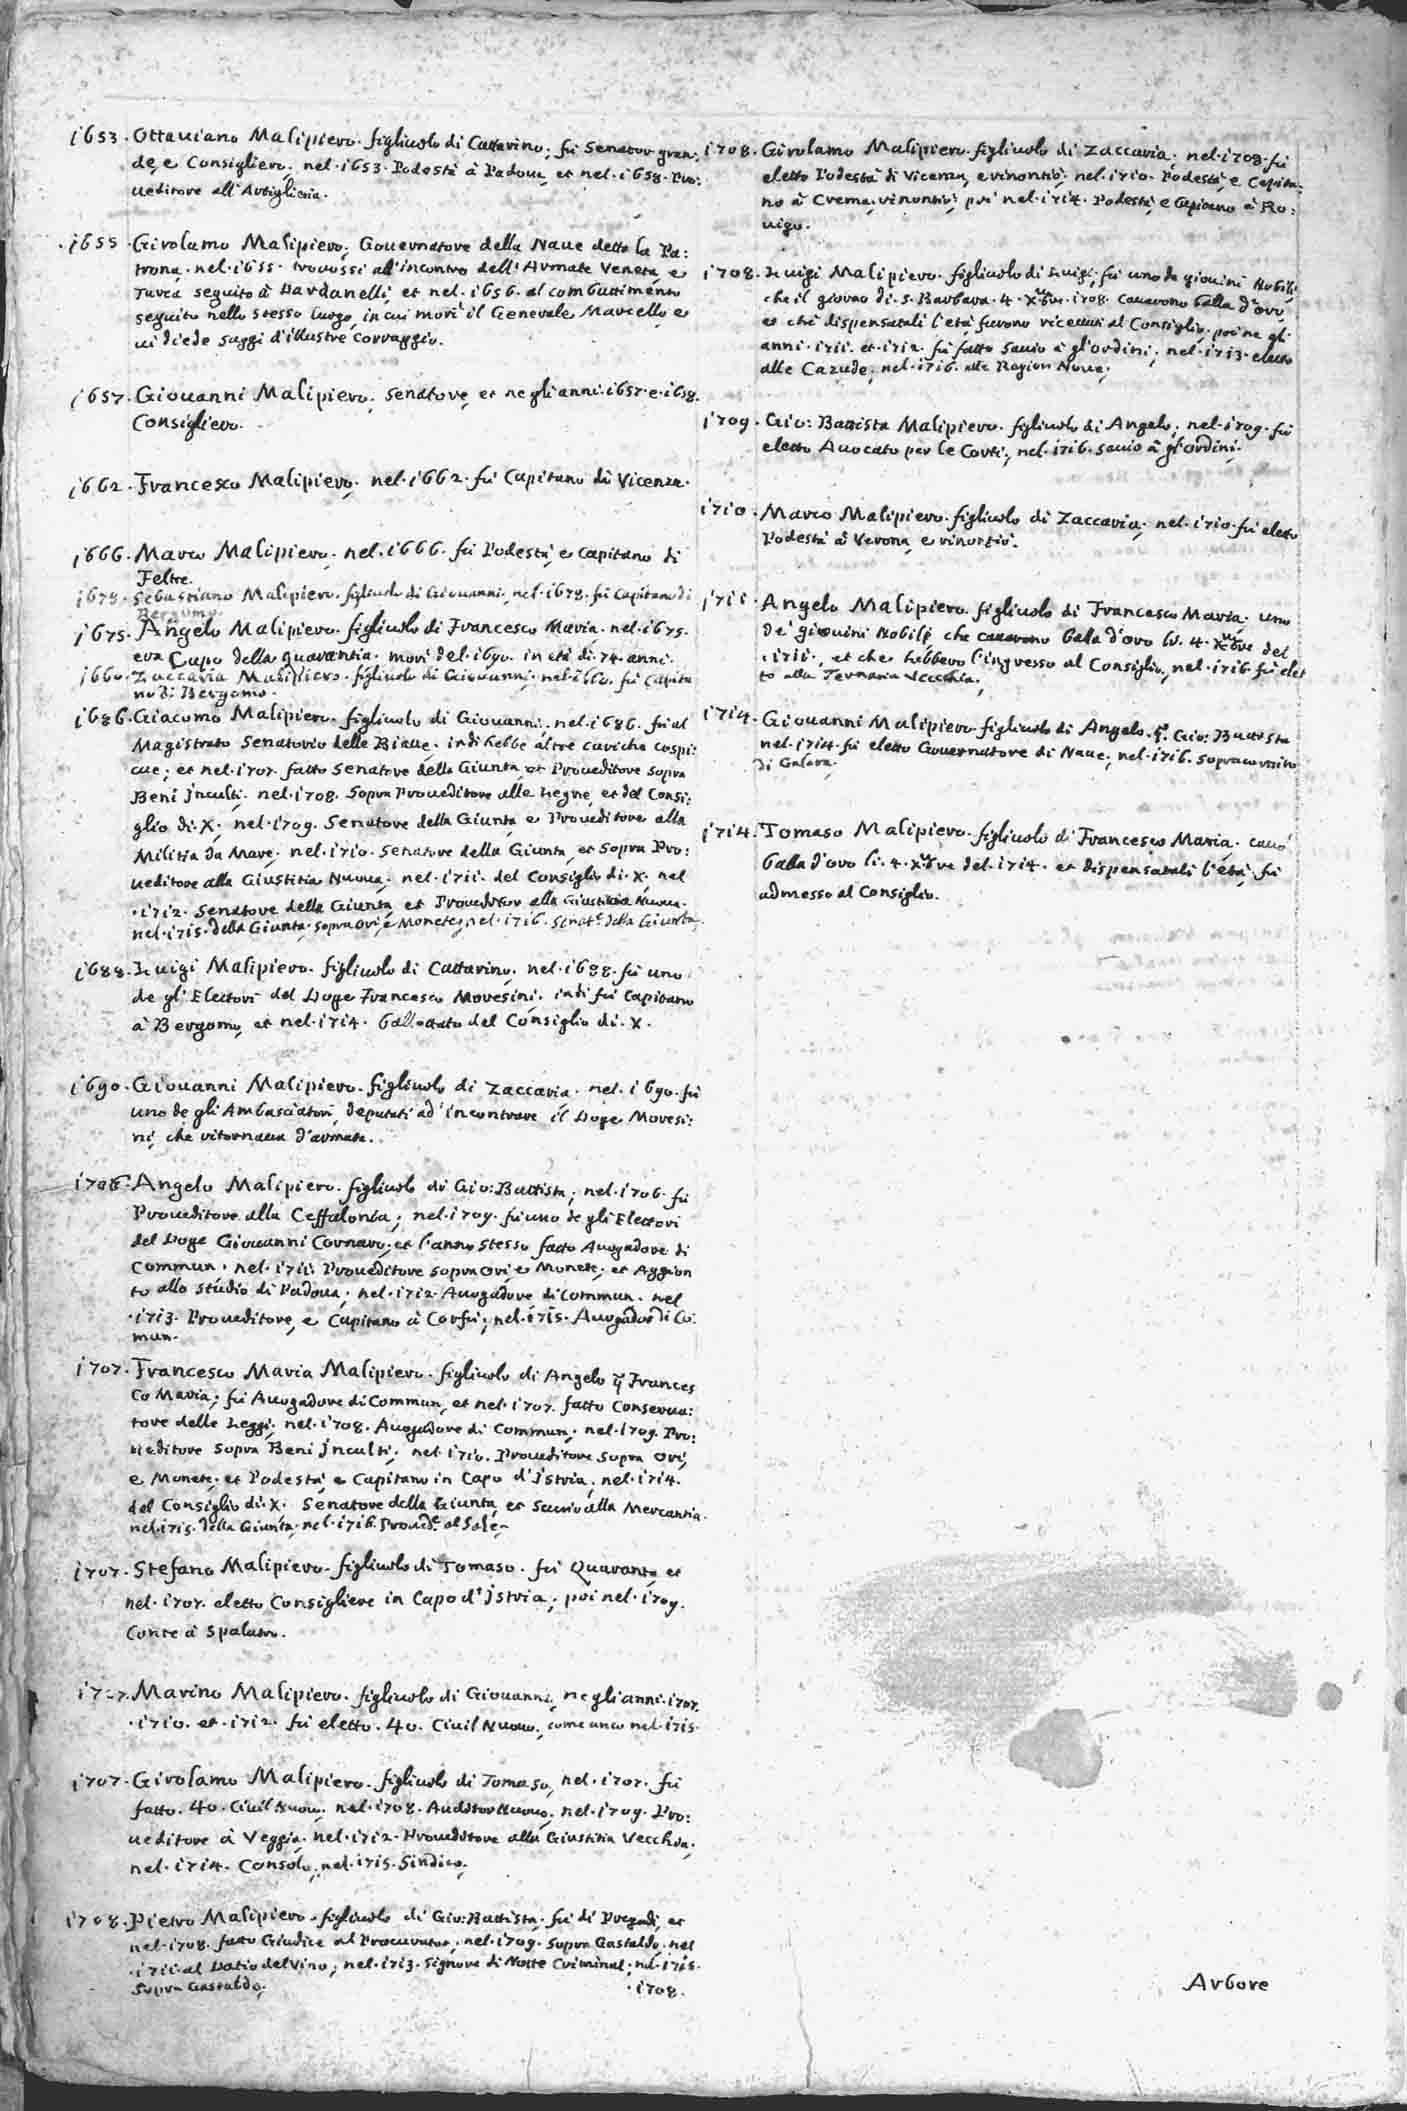 1653. Ottauiano Malipiero. figliuolo di Cattarino; fù Senator gran:
de, e Consigliero; nel. 1653. Podestà à Padoua, et nel. 1658. Pro:
ueditore all' Artiglieria.
1655. Girolamo Malipiero; Gouernatore della Naue detta la Pa:
trona. nel. 1655. trouossi all'incontro dell' Armate Veneta, e
Turca seguito à Dardanelli, et nel. 1656. al combattimento
seguito nello stesso luogo, in cui morì il Generale Marcello, e
ui diede saggi d'illustre corraggio.
1657. Giouanni Malipiero; Senatore, et negli anni. 1657. e. 1658.
Consigliero.
1662. Francesco Malipiero; nel. 1662. fù Capitano di Vicenza.
1666. Marco Malipiero; nel. 1666. fù Podestà, e Capitano di
Feltre.
1678. Sebastiano Malipiero. figliuolo di Giouanni; nel. 1678. fù Capitano di
Bergomo.
1675. Angelo Malipiero. figliuolo di Francesco Maria. nel. 1675.
era Capo della quarantia. morì del. 1690. in età di. 74. anni.
1660. Zaccaria Malipiero. figliuolo di Giouanni; nel. 1660. fù Capita
no di Bergomo.
1686. Giacomo Malipiero. figliuolo di Giouanni; nel. 1686. fù al
Magistrato Senatorio delle Biaue; indi hebbe altre cariche cospi:
cue; et nel. 1707. fatto Senatore della Giunta, et Proueditore sopra
Beni jnculti; nel. 1708. Sopra Proueditore alle Legne, et del Consi:
glio di. X; nel. 1709. Senatore della Giunta, e Proueditore alla
Militia da Mare; nel. 1710. Senatore della Giunta, et Sopra Pro:
ueditore alla Giustitia Nuoua; nel. 1711. del Consiglio di. X. nel
.1712. Senatore della Giunta, et Proueditor alla Giustitia Nuoua.
nel. 1715. della Giunta. sopra Ori, e Monete, nel. 1716. Senat.e della Giunta.
1688. Luigi Malipiero. figliuolo di Cattarino; nel. 1688. fù uno
de gl' Elettori del Doge Francesco Moresini. indi fù Capitano
à Bergomo, et nel. 1714. ballottato del Consiglio di. X.
1690. Giouanni Malipiero. figliuolo di Zaccaria. nel. 1690. fù
uno de gli Ambasciatori, deputati ad' incontrare il Doge Moresi:
ni, che ritornaua d'armata.
1706. Angelo Malipiero. figliuolo di Gio: Battista; nel. 1706. fù
Proueditore alla Ceffalonia; nel. 1709. fù uno de gli Elettori
del Doge Giouanni Cornaro; et l'anno stesso fatto Auogadore di
Commun. nel. 1711. Proueditore sopra Ori, e Monete; et Aggion
to allo studio di Padoua; nel. 1712. Auogadore di Commun. nel
.1713. Proueditore, e Capitano à Corfù; nel. 1715. Auogador di Co:
mun.
1707. Francesco Maria Malipiero. figliuolo di Angelo q. Frances
co Maria; fù Auogadore di Commun, et nel. 1707. fatto Conserua:
tore delle Leggi; nel. 1708. Auogadore di Commun; nel. 1709. Pro:
ueditore sopra Beni jnculti; nel. 1710. Proueditore sopra Ori,
e Monete; et Podestà, e Capitano in Capo d' jstria; nel. 1714.
del Consiglio di. X. Senatore della Giunta, et Sauio alla Mercantia.
nel. 1715. della Giunta, nel. 1716. Proued.e al Sale.
1707. Stefano Malipiero. figliuolo di Tomaso. fù Quaranta, et
nel. 1707. eletto Consigliere in Capo d' jstria; poi nel. 1709.
Conte à Spalatro.
1707. Marino Malipiero. figliuolo di Giouanni, negli anni. 1707.
.1710. et. 1712. fù eletto. 40. Ciuil Nuouo, come anco nel. 1715.
1707. Girolamo Malipiero. figliuolo di Tomaso, nel. 1707. fù
fatto. 40. Ciuil Nuouo; nel. 1708. Auditor Nuouo; nel. 1709. Pro:
ueditore à Veggia; nel. 1712. Proueditore alla Giustitia Vecchia.
nel. 1714. Consolo, nel. 1715. Sindico.
1708. Pietro Malipiero. figliuolo di Gio: Battista; fù di Pregadi, et
nel. 1708. fatto Giudice al Procurator; nel. 1709. Sopra Gastaldo; nel
.1711. al Datio del Vino; nel. 1713. Signore di Notte Criminal; nel. 1715.
Sopra Gastaldo.
.1708.
1708. Girolamo Malipiero. figliuolo di Zaccaria; nel. 1708. fù
eletto Podestà di Vicenza, e rinontiò; nel. 1710. Podestà, e Capita:
no à Crema, rinontiò; poi nel. 1714. Podestà, e Capitano à Ro:
uigo.
1708. Luigi Malipiero. figliuolo di Luigi. fù uno de giouini Nobili,
che il giorno di. S. Barbara. 4. Xmbre. 1708. cauarono balla d'oro,
et che dispensatali l'età furono riceuuti al Consiglio. poi ne gl'
anni. 1711. et. 1712. fù fatto Sauio à gl'ordini; nel. 1713. eletto
alle Cazude; nel. 1716. alle Ragion Noue.
1709. Gio: Battista Malipiero. figliuolo di Angelo; nel. 1709. fù
eletto Auocato per le Corti; nel. 1716. sauio à gl'ordini.
1710. Marco Malipiero. figliuolo di Zaccaria; nel. 1710. fù eletto
Podestà à Verona, e rinontiò.
1711. Angelo Malipiero. figliuolo di Francesco Maria. uno
de' giouini Nobili, che cauarono balla d'oro li. 4. Xmbre del
.1711., et che hebbero l'ingresso al Consiglio, nel. 1716. fù elet
to alla Ternaria Vecchia.
1714. Giouanni Malipiero. figliuolo di Angelo. q. Gio: Battista
nel. 1714. fù eletto Gouernatore di Naue; nel. 1716. sopracomito
di Galera.
1714. Tomaso Malipiero. figliuolo di Francesco Maria. cauò
balla d'oro li. 4. Xmbre del. 1714. et dispensatali l'età, fù
admesso al Consiglio.
Arbore